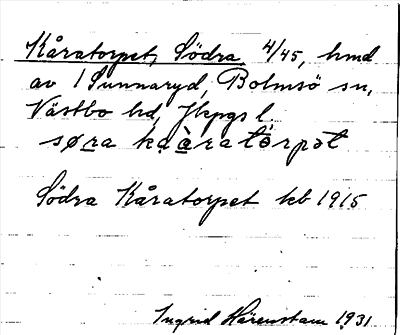 Kåratorpet, Södra 4/45, hmd
av 1 Sunnaryd, Bolmsö sn,
Västbo hd, Jkpgs l.
Södra Kåratorpet kb 1915
Ingrid Härenstam 1931